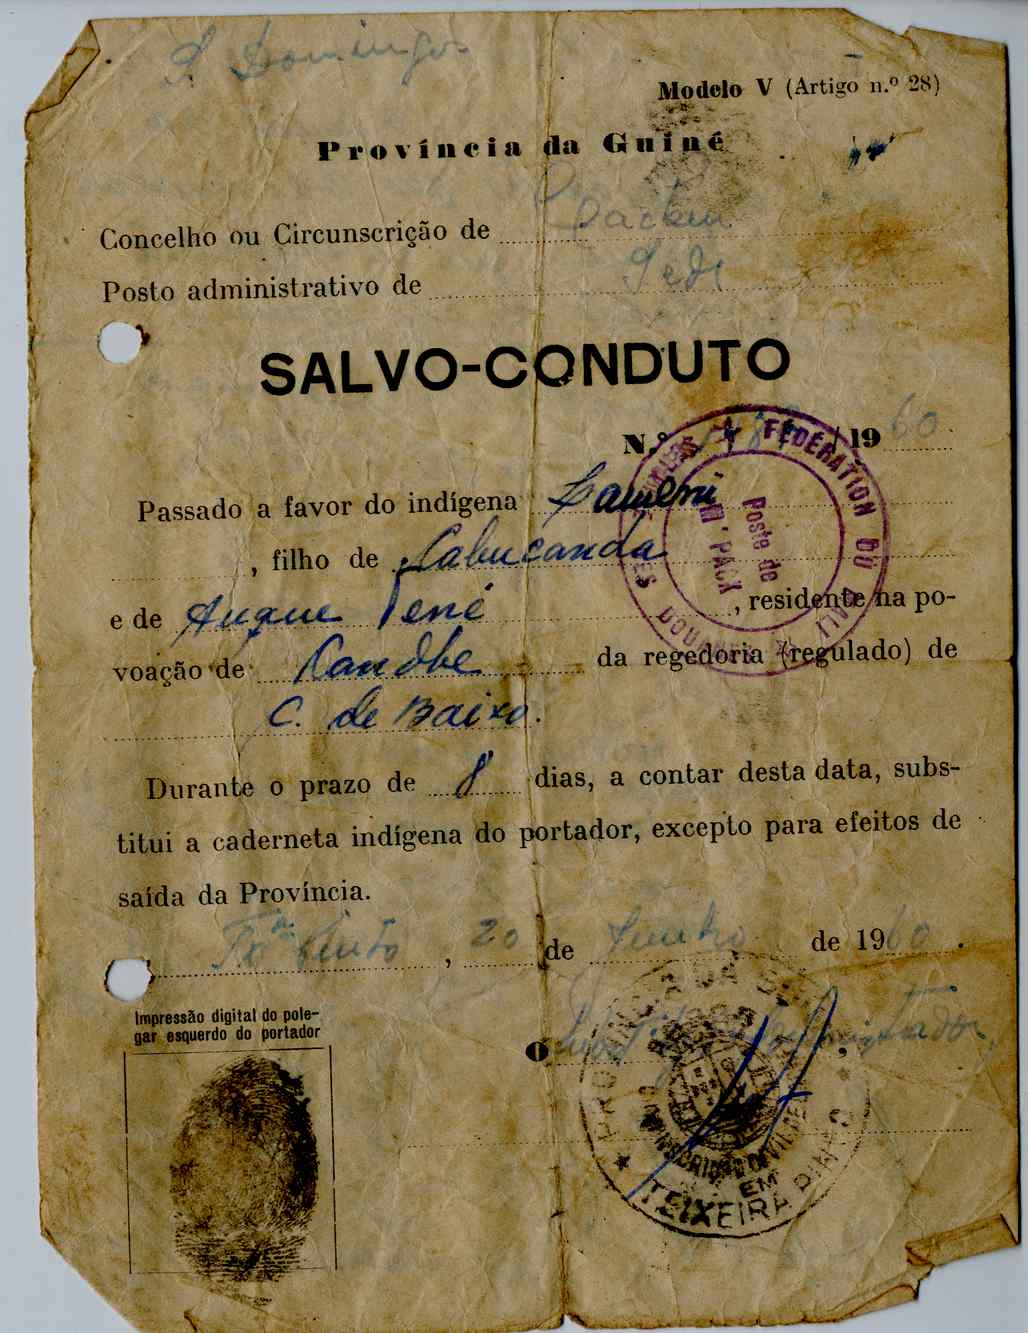 S. Domingos
Modelo V (Artigo n.º 28)
Província da Guiné
Concelho ou Circunscrição de
Posto administrativo de Sede
SALVO-CONDUTO
N.º 1960
Passado a favor do indígena
, filho de Cabucanda
e de Auque Pené, residente na po-
voação de Kandbe da regedoria (regulado) de
C. de Baixo.
Durante o prazo de 8 dias, a contar desta data, subs-
titui a caderneta indígena do portador, excepto para efeitos de
saída da Província.
Pinto, 20 de de 1960.
Impressão digital do pole-
gar esquerdo do portador
O Administrador,
FÉDÉRATION DU MALI
Poste de
M'PACK
PROVÍNCIA DA
CIRCUNSCRIÇÃO CIVIL
EM
TEIXEIRA PINTO